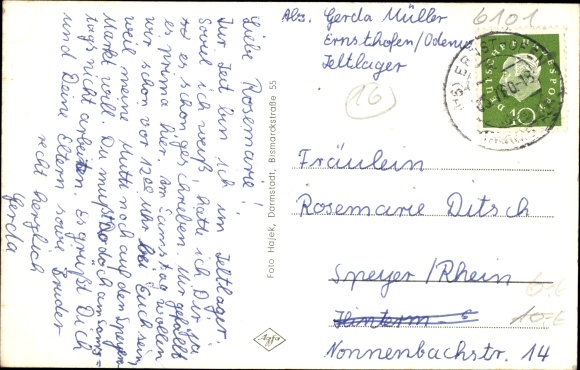 Abs. Gerda Müller
Ernsthofen/Odenw.
Zeltlager
6101
16
Liebe Rosemarie!
Zur Zeit bin ich im Zeltlager.
Soviel ich weiß, hatte ich Dir ja
es schon geschrieben. Mir gefällt
es prima hier. Am Samstag wollen
wir schon vor 12 00 Uhr bei Euch sein,
weil meine Mutti noch auf den Speyerer
Markt will. Du mußt doch am Sams=
tags nicht arbeiten. Es grüßt Dich
und Deine Eltern sowie Bruder
recht herzlich
Gerda
Foto Hajek, Darmstadt, Bismarckstraße 55
Agfa
DEUTSCHE BUNDESPOST
10
Fräulein
Rosemarie Ditsch
Speyer/Rhein
Hinterm
Nonnenbachstr. 14